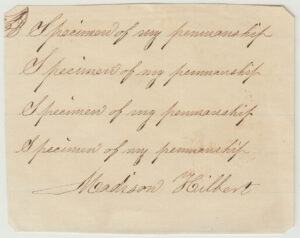 Specimen of my penmanship
Specimen of my penmanship.
Specimen of my penmanship.
Specimen of my penmanship.
Madison Hilbert